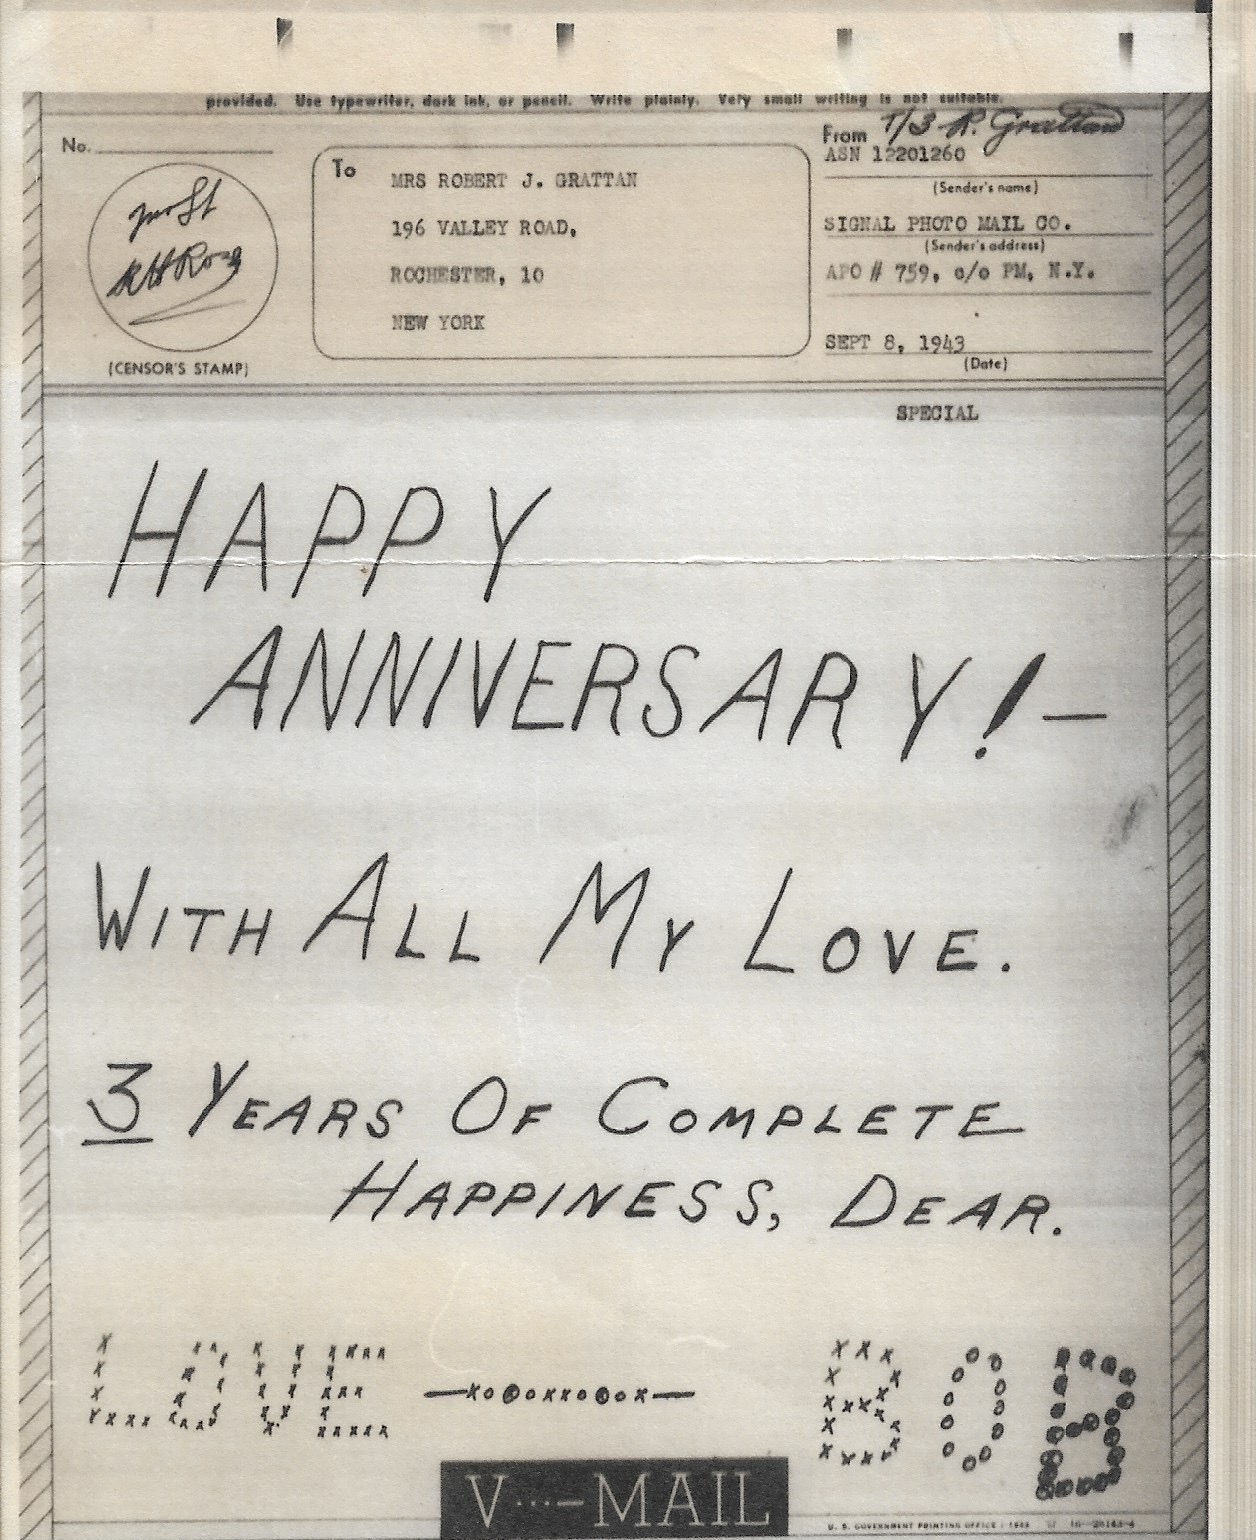 provided. Use typewriter, dark ink, or pencil. Write plainly. Very small writing is not suitable.
No.
(CENSOR'S STAMP)
To
MRS ROBERT J. GRATTAN
196 VALLEY ROAD,
ROCHESTER, 10
NEW YORK
From T/3 R. Grattan
ASN 12201260
(Sender's name)
SIGNAL PHOTO MAIL CO.
(Sender's address)
APO # 759, c/o PM, N.Y.
SEPT 8, 1943
(Date)
SPECIAL
HAPPY
ANNIVERSARY! —
WITH ALL MY LOVE.
3 YEARS OF COMPLETE
HAPPINESS, DEAR.
LOVE —xo●oxxo●ox— BOB
V···—MAIL
U. S. GOVERNMENT PRINTING OFFICE